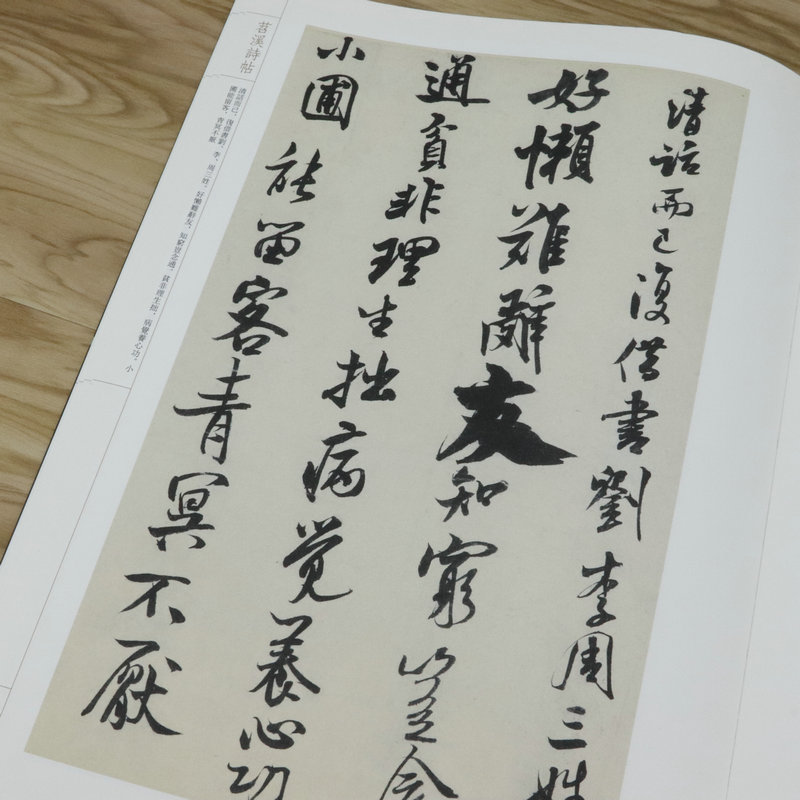 清話而已復借書劉李周三姓
好懶難辭友知窮豈念
通貧非理生拙病覺養心功
小圃能留客青冥不厭
苕溪詩帖
清話而已，復借書劉、李、周三姓。好懶難辭友，知窮豈念通。貧非理生拙，病覺養心功。小
圃能留客，青冥不厭